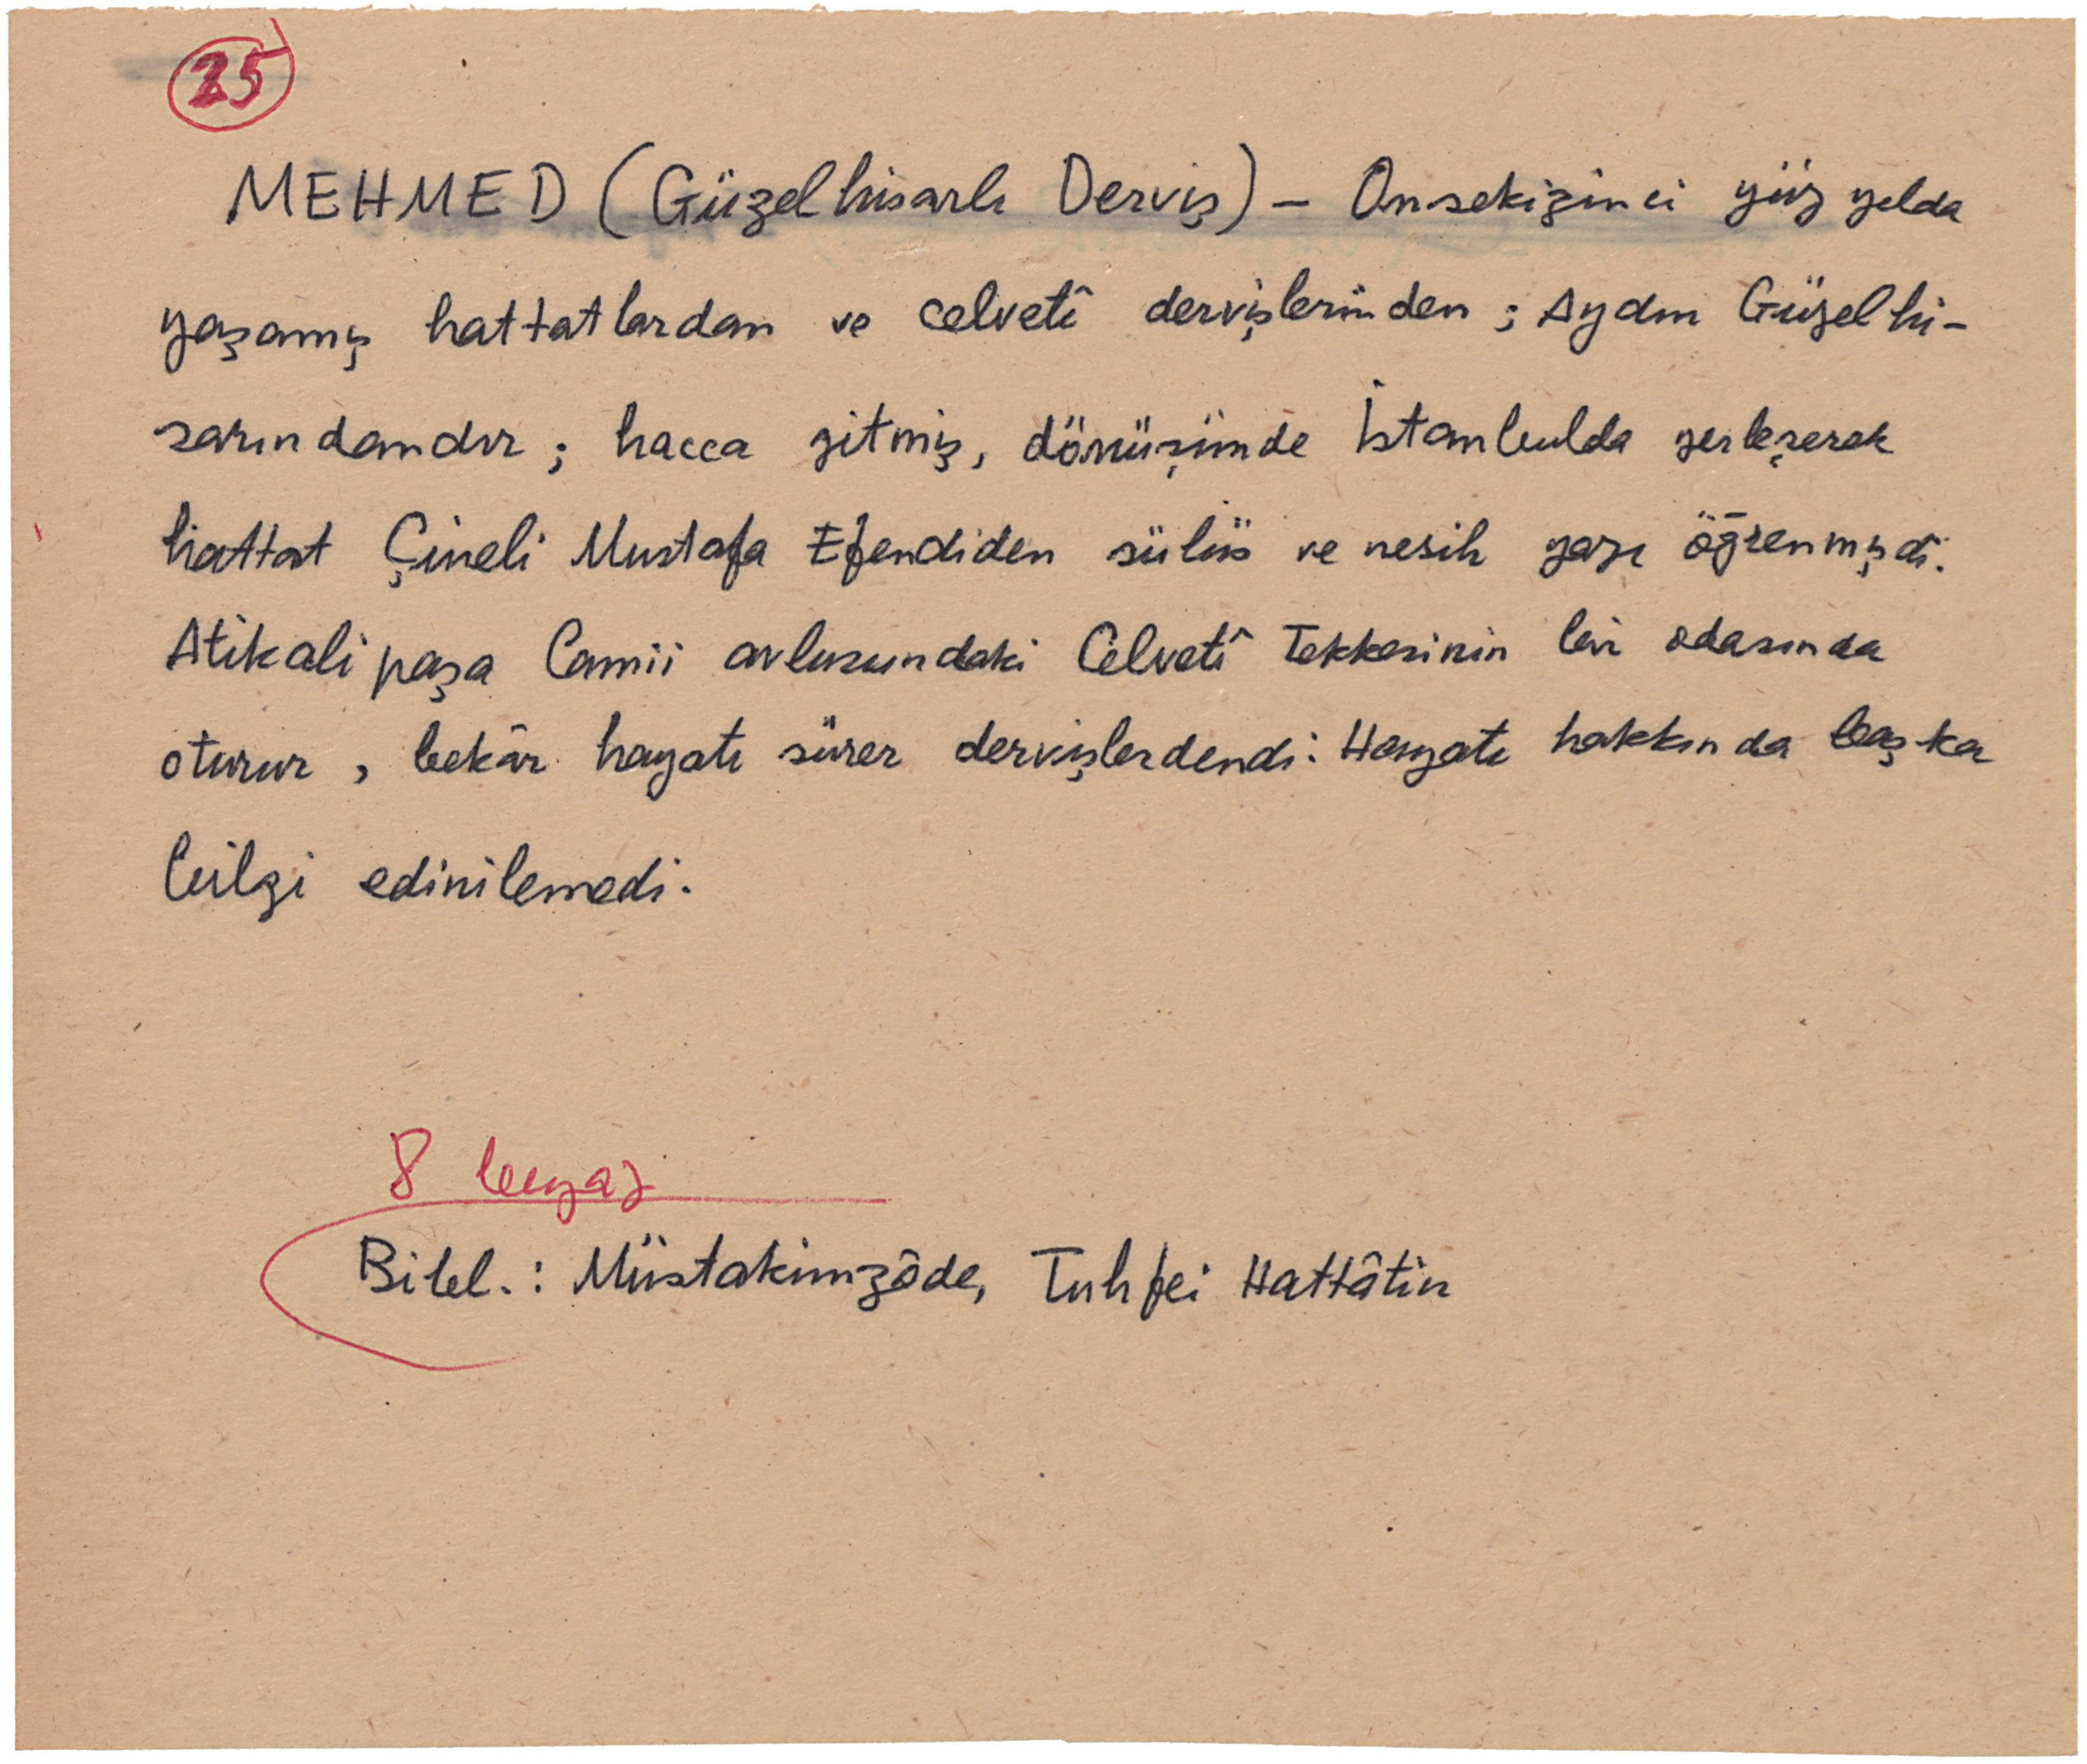 25
MEHMED (Güzelhisarlı Derviş) – Onsekizinci yüz yılda
yaşamış hattatlardan ve celvetî dervişlerinden ; Aydın Güzelhi-
sarındandır ; hacca gitmiş, dönüşünde İstanbulda yerleşerek
hattat Çineli Mustafa Efendiden sülüs ve nesih yazı öğrenmişdi.
Atikalipaşa Camii avlusundaki Celvetî Tekkesinin bir odasında
oturur , bekâr hayatı sürer dervişlerdendi. Hayatı hakkında başka
bilgi edinilemedi.
8 beyaz
Bibl. : Müstakimzâde, Tuhfei Hattâtin